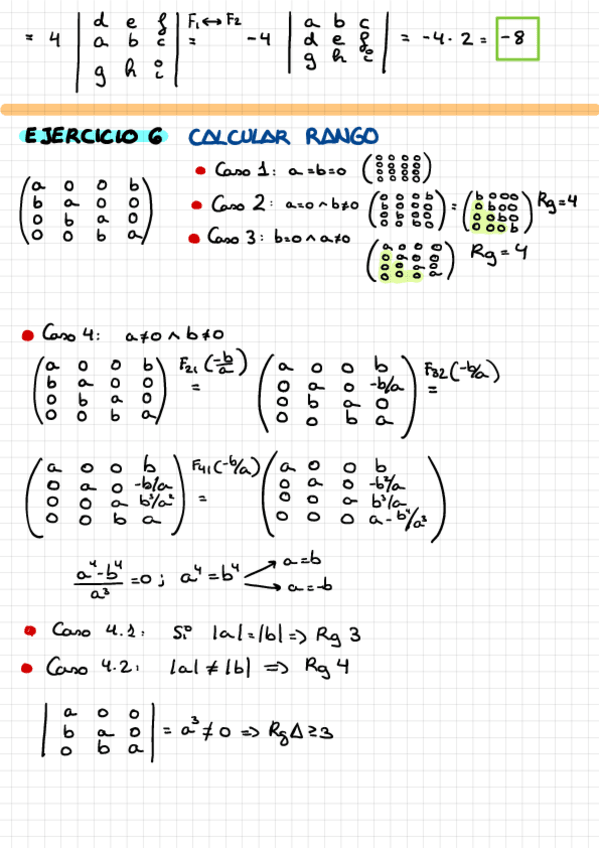 = 4 | d e f | F₁↔F₂ = -4 | a b c | = -4·2 = -8
| a b c | | d e f |
| g h i | | g h i |
EJERCICIO 6 CALCULAR RANGO
• Caso 1: a=b=0 (0 0 0 0
0 0 0 0
0 0 0 0
0 0 0 0)
(a 0 0 b
b a 0 0
0 b a 0
0 0 b a)
• Caso 2: a=0 ∧ b≠0 (0 0 0 b
b 0 0 0
0 b 0 0
0 0 b 0) = (b 0 0 0
0 b 0 0
0 0 b 0
0 0 0 b) Rg=4
• Caso 3: b=0 ∧ a≠0
(a 0 0 0
0 a 0 0
0 0 a 0
0 0 0 a) Rg = 4
• Caso 4: a≠0 ∧ b≠0
(a 0 0 b
b a 0 0
0 b a 0
0 0 b a) F₂₁(-b/a) = (a 0 0 b
0 a 0 -b/a
0 b a 0
0 0 b a) F₃₂(-b/a) =
(a 0 0 b
0 a 0 -b/a
0 0 a b³/a²
0 0 b a) F₄₁(-b/a) = (a 0 0 b
0 a 0 -b²/a
0 0 a b³/a
0 0 0 a-b⁴/a³)
a⁴-b⁴/a³ =0 ; a⁴=b⁴ → a=b
→ a=-b
• Caso 4.1: Si |a|=|b| => Rg 3
• Caso 4.2: |a|≠|b| => Rg 4
| a 0 0 |
| b a 0 | = a³≠0 => Rg A ≥3
| 0 b a |